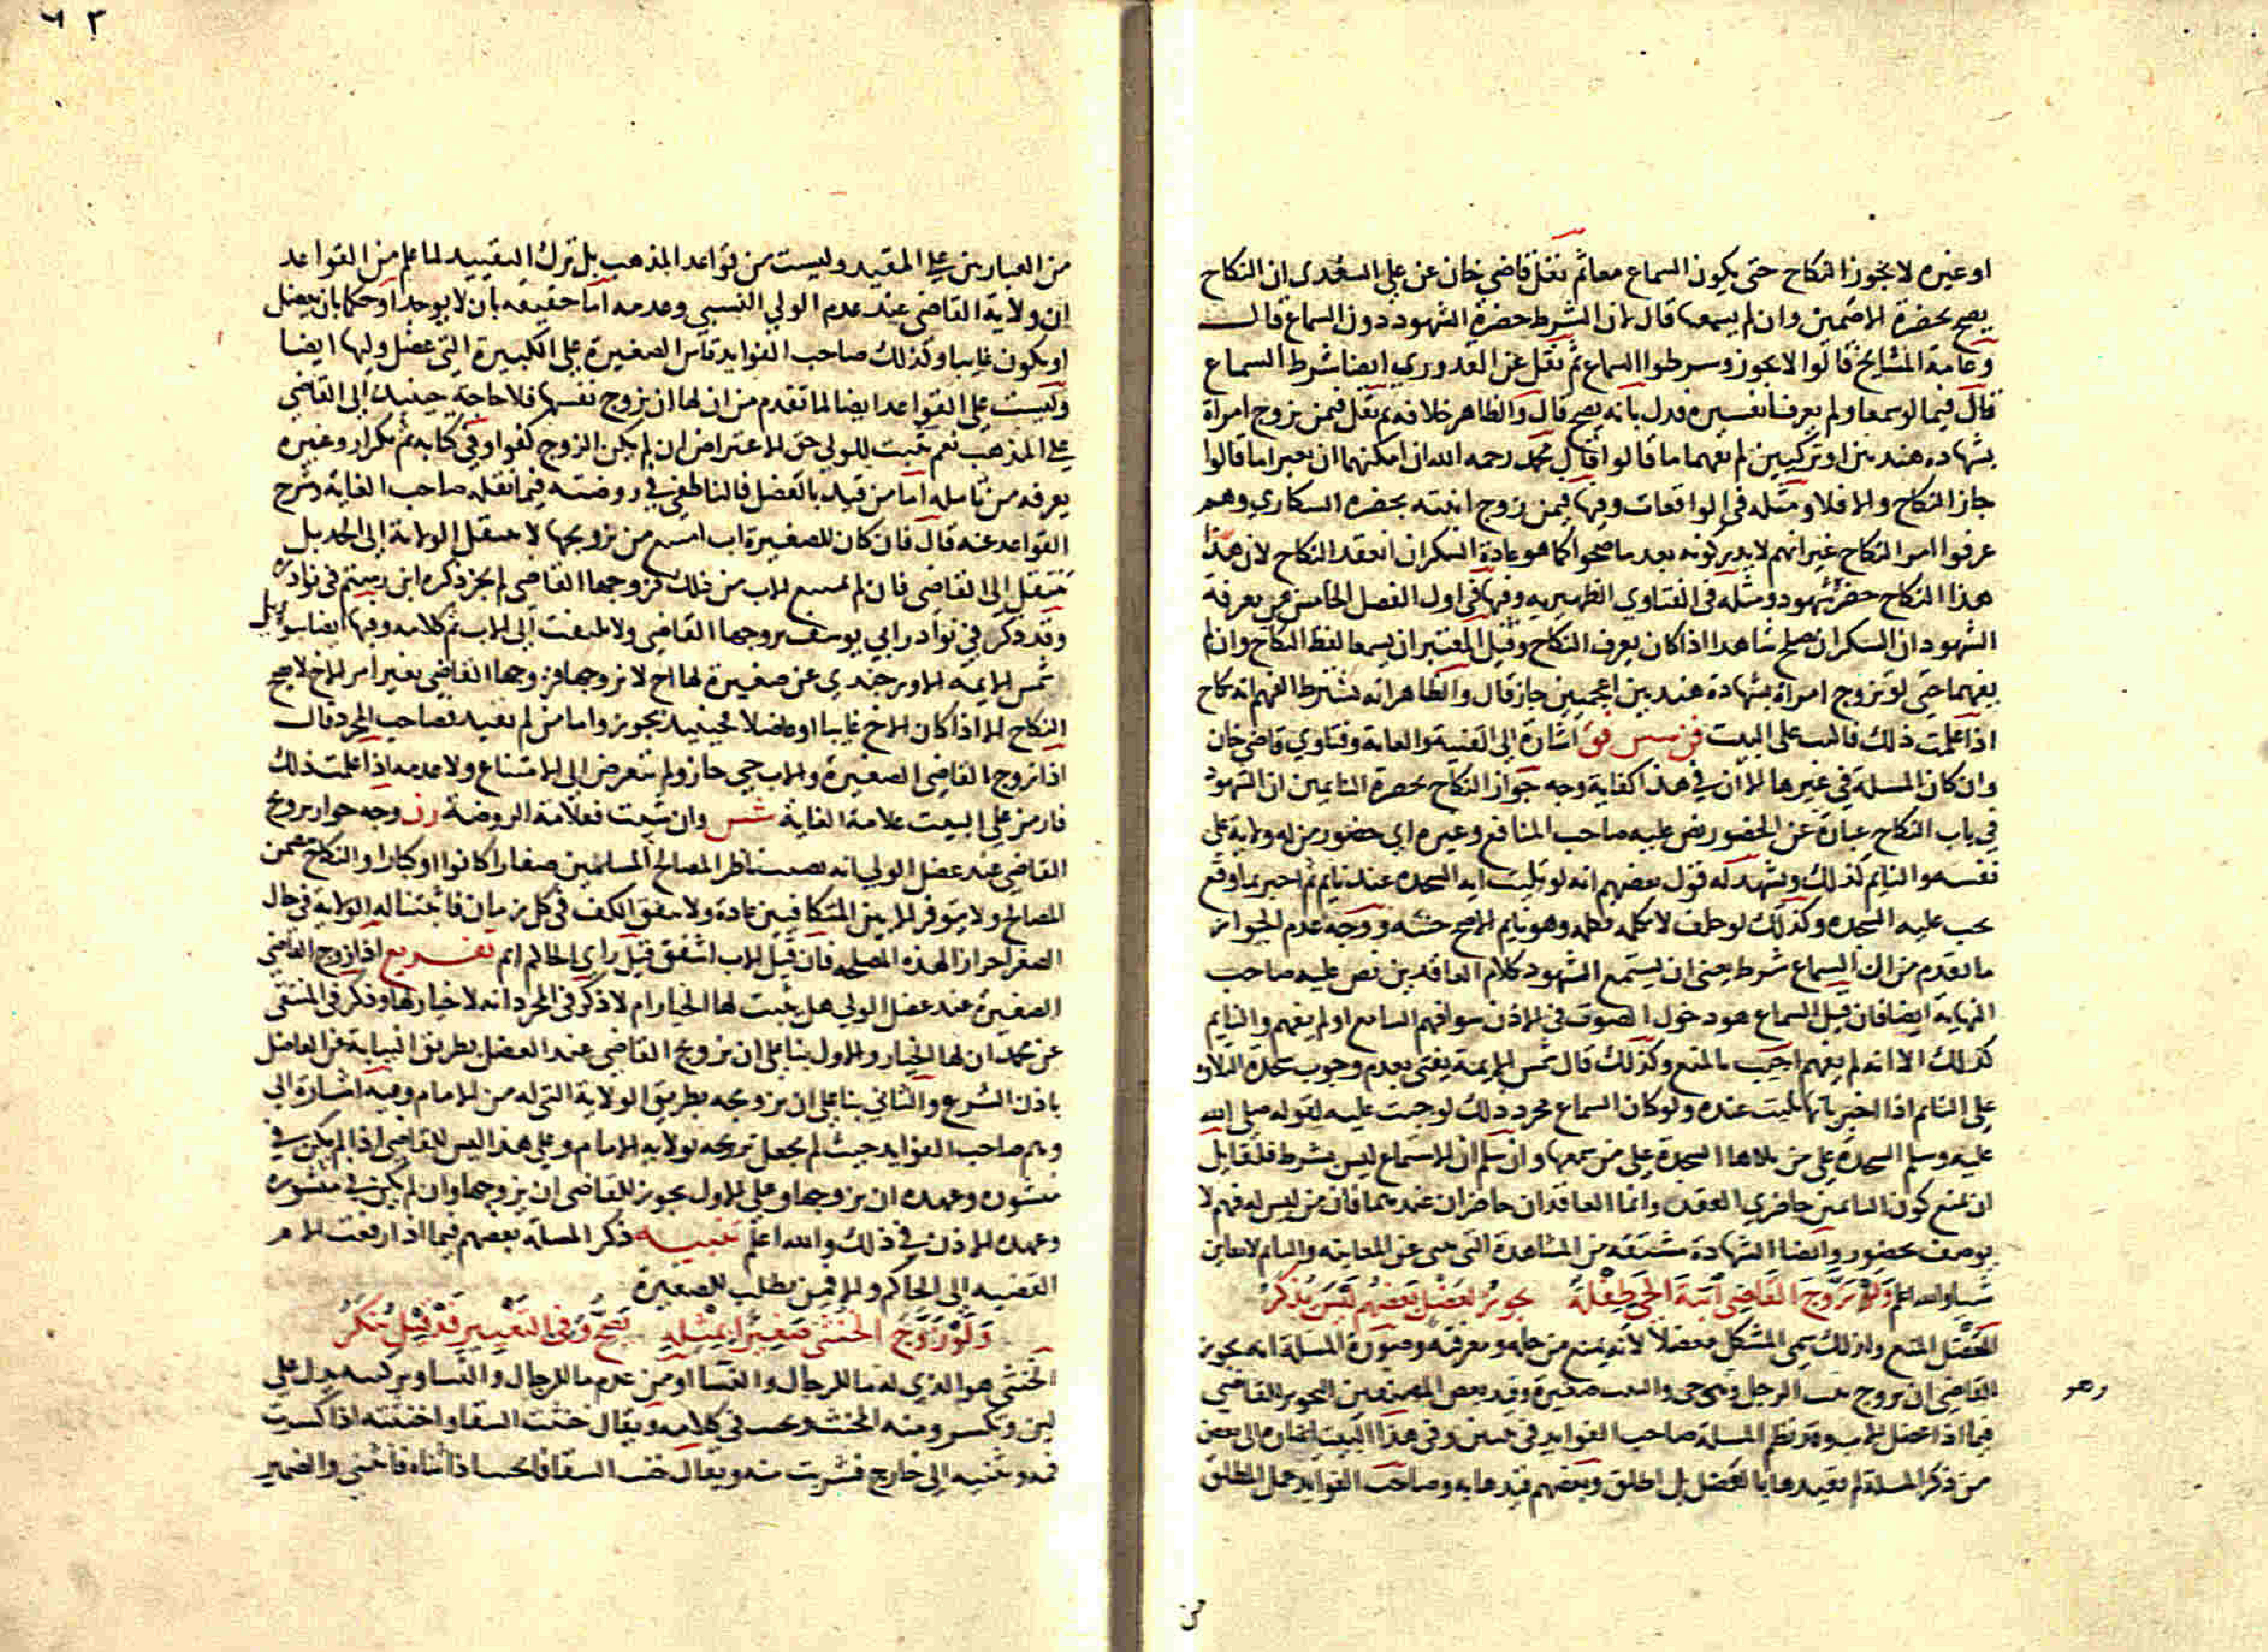 او غيره لا يجوز النكاح حتى يكون السماع معا ثم نقل قاضي خان عن علي السغدي ان النكاح
يصح بحضرة الاصمين وان لم يسمعا قال لان الشرط حضرة الشهود دون السماع قال
وعامة المشايخ قالوا لا يجوز وشرطوا السماع ثم نقل عن القدوري ايضا شرط السماع
قال فيما لو سمعا ولم يعرفا تفسيره فدل بانه يصح قال والظاهر خلافه ثم نقل فيمن تزوج امراة
بشهادة هنديين او تركيين لم يفهما ما قالوا قال محمد رحمه الله ان امكنهما ان يعبرا ما قالوا
جاز النكاح والا فلا ومثله في الواقعات وفيها فيمن زوج ابنته بحضرة السكارى وهم
عرفوا امر النكاح غير انهم لا يدركونه بعد ما صحوا كما هو عادة السكران انعقد النكاح لان هذا
هذا النكاح حضره شهود ومثله في الفتاوي الظهيريه وفيها في اول الفصل الخامس في معرفة
الشهود ان السكران يصلح شاهدا اذا كان يعرف النكاح وقيل المعتبر ان يسمعا لفظ النكاح وان لم
يفهما حتى لو تزوج امراة بشهادة هنديين اعجميين جاز قال والظاهر انه يشترط الفهم انه نكاح
اذا علمت ذلك فالبت على البيت اشارة الى القنية والغاية وفتاوي قاضي خان
وان كان المسلة في غيرها الا ان في هذا كفاية وجه جواز النكاح بحضرة النايمين ان الشهود
في باب النكاح عبارة عن الحضور نص عليه صاحب المنافع وغيره اي حضور من له ولاية على
نفسه والنايم كذلك ويشهد له قول بعضهم انه لو تليت اية السجدة عند نايم ثم اخبر بما وقع
يجب عليه السجدة وكذلك لو حلف لا يكلمه فكلمه وهو نايم الاصح حنثه ووجه عدم الجواز
ما تقدم من ان السماع شرط يعني ان يستمع الشهود كلام العاقدين نص عليه صاحب
النهاية ايضا فان قيل السماع هو دخول الصوت في الاذن سوا فهم السامع او لم يفهم والنايم
كذلك الا انه لم يفهم اجيب بالمنع وكذلك قال شمس الايمة يفتى بعدم وجوب سجدة التلاوة
على النايم اذا اخبر بانها تليت عنده ولو كان السماع مجرد ذلك لوجبت عليه لقوله صلى الله
عليه وسلم السجدة على من تلاها السجدة على من سمعها وان سلم ان الاستماع ليس بشرط فلقايل
ان يمنع كون النايمين حاضري العقد وانما العاقدان حاضران عندهما فان من ليس له فهم لا
يوصف بحضور وايضا الشهادة مشتقة من المشاهدة التي هي عن المعاينه والنايم لا يعاين
شيا والله اعلم ولو زوج القاضي ابنة الحي طفلة يجوز لعضل بعضهم ليس يذكر
العضل المنع ولذلك سمي المشكل معضلا لانه يمنع من حله ومعرفته وصورة المسلة انه يجوز
القاضي ان يزوج بنت الرجل وهو حي والبنت صغيرة وقيد بعض المصنفين التجويز للقاضي
فيما اذا عضل الاب وقد نظم المسلة صاحب الفوايد في بيتين وفي هذا البيت ايضا الى بعض
من ذكر المسلة لم يقيدها بالعضل بل اطلق وبعضهم قيدها به وصاحب الفوايد حمل المطلق
من
وهو
٦٣
من العبارتين على المقيد وليست من قواعد المذهب بل ترك التقييد لما علم من القواعد
ان ولاية القاضي عند عدم الولي النسبي وعدمه اما حقيقه بان لا يوجد او حكما بان يعضل
او يكون غايبا وكذلك صاحب الفوايد قاس الصغيرة على الكبيرة التي عضل وليها ايضا
وليست على القواعد ايضا لما تقدم من ان لها ان تزوج نفسها فلا حاجة حينيذ الى القاضي
على المذهب نعم يثبت للولي حق الاعتراض ان لم يكن الزوج كفوا وفي كتابه ثم تكرار وغيره
يعرفه من تامله اما من قيد بالعضل فالناطفي في روضته فيما نقله صاحب الغاية وشرح
القواعد عنه قال فان كان للصغيرة اب امتنع من تزويجها لا تنتقل الولاية الى الجد بل
تنتقل الى القاضي فان لم يمتنع الاب من ذلك فزوجها القاضي لم يجز ذكره ابن رستم في نوادره
وقد ذكر في نوادر ابي يوسف يزوجها القاضي ولا يلتفت الى الاب تم كلامه وفيها ايضا سيل
شمس الايمة الاوزجندي عن صغيرة لها اخ لا يزوجها فزوجها القاضي بغير امر الاخ لا يصح
النكاح الا اذا كان الاخ غايبا او عاضلا فحينيذ يجوز واما من لم يقيد فصاحب المجرد قال
اذا زوج القاضي الصغيرة والاب حي جاز ولم يتعرض الى الامتناع ولا عدمه اذا علمت ذلك
فارمز على البيت علامة الغاية شس وان شيت فعلامة الروضة رن وجه جواز تزويج
القاضي عند عضل الولي انه نصب ناظرا لمصالح المسلمين صغارا كانوا او كبارا والنكاح يتضمن
المصالح ولا يتوفر الا بين المتكافيين عادة ولا يتفق الكفو في كل زمان فاثبتنا له الولاية في حال
الصغر احرازا لهذه المصلحة فان قيل الاب اشفق قيل راي الحاكم اتم تفريع اذا زوج القاضي
الصغيرة عند عضل الولي هل يثبت لها الخيار ام لا ذكر في المجرد انه لا خيار لها وذكر في المنتقى
عن محمد ان لها الخيار والاول بنا على ان تزويج القاضي عند العضل بطريق النيابة عن العاضل
باذن الشرع والثاني بنا على ان تزويجه بطريق الولاية التي له من الامام وفيه اشارة الى
وهم صاحب الفوايد حيث لم يجعل تزويجه بولاية الامام وعلى هذا ليس للقاضي اذا لم يكن في
منشوره وعهده ان يزوجها وعلى الاول يجوز للقاضي ان يزوجها وان لم يكن في منشوره
وعهده الاذن في ذلك والله اعلم تنبيه ذكر المسلة بعضهم فيما اذا رفعت الام
القضيه الى الحاكم والا فمن يطلب للصغيرة
ولو زوج الخنثى صغيرا بمثله يصح وفي التغيير قد قيل منكر
الخنثى هو الذي له ما للرجال والنسا او من عدم ما للرجال والنسا وتركيبه يدل على
لين وتكسر ومنه المخنث في كلامه ويقال خنثت السقا واختنثته اذا كسرت
فمه وثنيته الى خارج فشربت منه ويقال خنث السقا فانخنث اذا ثناه فانثنى والضمير